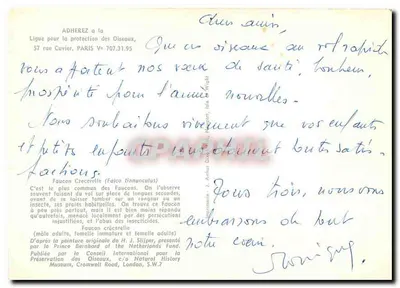 ADHEREZ a la
Ligue pour la protection des Oiseaux,
57 rue Cuvier, PARIS Ve 707.31.95
Chers amis,
Que ces oiseaux au vol rapide
vous apportent nos vœux de santé, bonheur,
prospérité pour l'année nouvelle.
Nous souhaitons vivement que vos enfants
et petits enfants vous donnent toutes satis-
factions.
Tous trois, nous vous
embrassons de tout
notre cœur.
Faucon Crecerelle (Falco tinnunculus)
C'est le plus commun des Faucons. On l'observe
souvent faisant du vol sur place de longues secondes,
avant de se laisser tomber sur un rongeur ou un
insecte, ses proies habituelles. On le trouve en France
à peu près partout, mais il est devenu moins commun
qu'autrefois, menacé localement par des persécutions
injustifiées, et l'abus des insecticides.
Faucon crécerelle
(mâle adulte, femelle immature et femelle adulte)
D'après la peinture originale de H. J. Slijper, présenté
par le Prince Bernhard of the Netherlands Fund.
Publiée par le Conseil International pour la
Préservation des Oiseaux, c/o Natural History
Museum, Cromwell Road, London, S.W.7